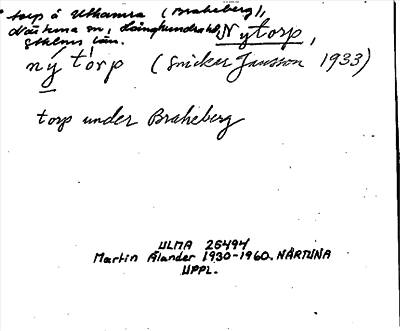 torp å Uthamra (Braheberg),
Närtuna sn, Långhundra hd, Nytorp,
Sthlms län.
ný tórp (Snickar Jansson 1933)
torp under Braheberg
ULMA 26494
Martin Ålander 1930-1960. NÄRTUNA
UPPL.